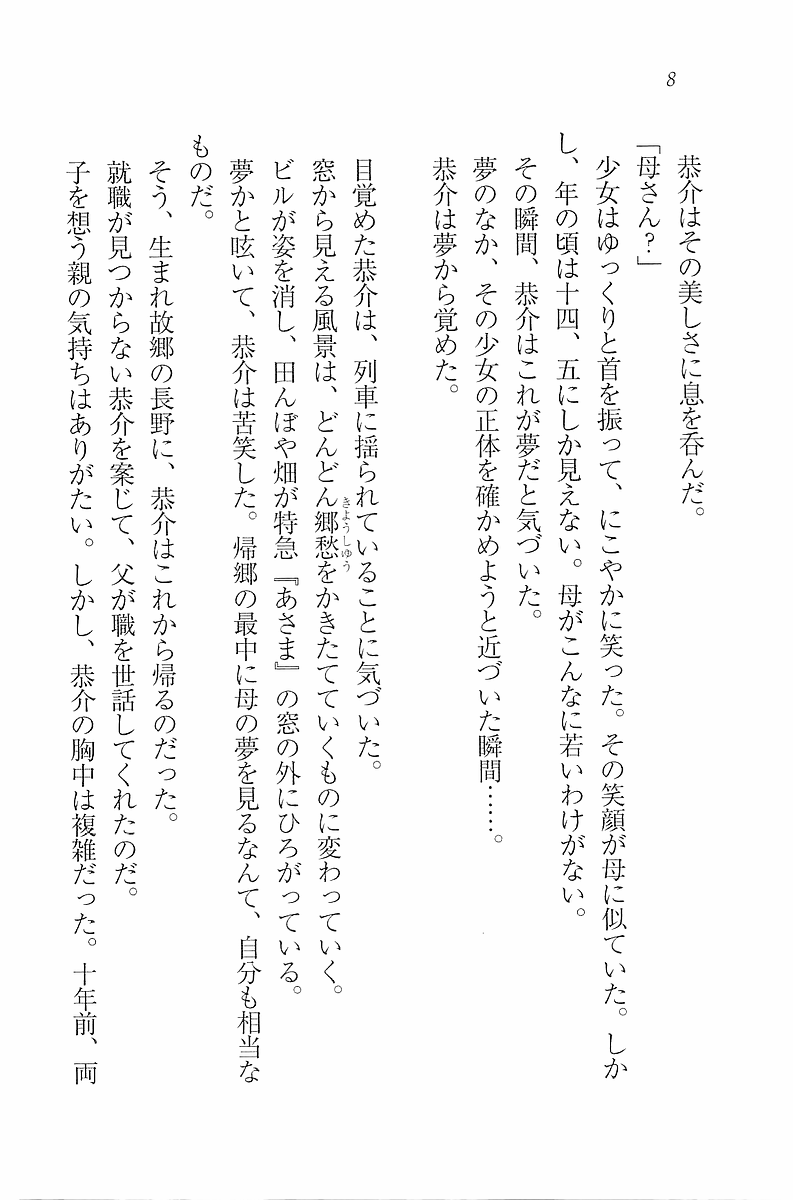 8
恭介はその美しさに息を呑んだ。
「母さん？」
少女はゆっくりと首を振って、にこやかに笑った。その笑顔が母に似ていた。しか
し、年の頃は十四、五にしか見えない。母がこんなに若いわけがない。
その瞬間、恭介はこれが夢だと気づいた。
夢のなか、その少女の正体を確かめようと近づいた瞬間……。
恭介は夢から覚めた。
目覚めた恭介は、列車に揺られていることに気づいた。
窓から見える風景は、どんどん郷愁をかきたてていくものに変わっていく。
きようしゆう
ビルが姿を消し、田んぼや畑が特急『あさま』の窓の外にひろがっている。
夢かと呟いて、恭介は苦笑した。帰郷の最中に母の夢を見るなんて、自分も相当な
ものだ。
そう、生まれ故郷の長野に、恭介はこれから帰るのだった。
就職が見つからない恭介を案じて、父が職を世話してくれたのだ。
子を想う親の気持ちはありがたい。しかし、恭介の胸中は複雑だった。十年前、両